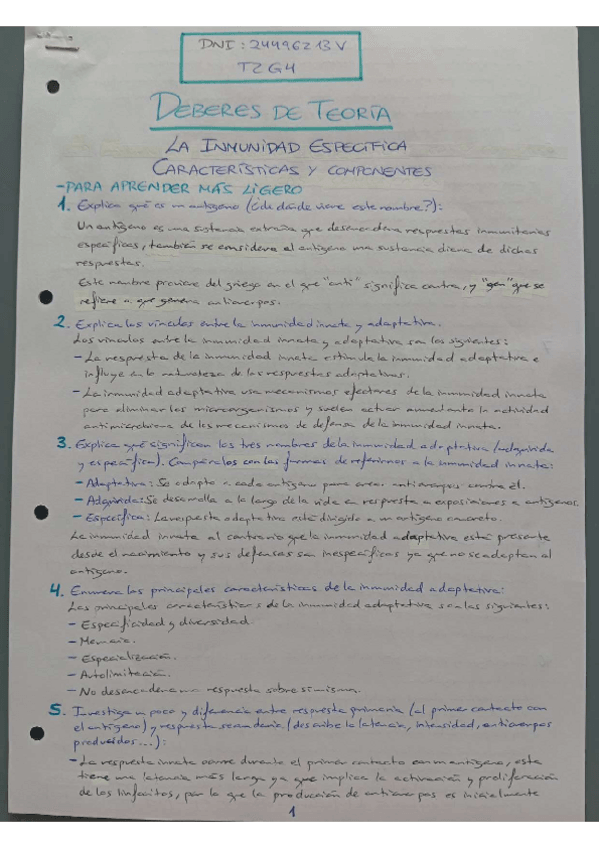 DNI: 24496213V
T2 G4
DEBERES DE TEORÍA
LA INMUNIDAD ESPECÍFICA
CARACTERÍSTICAS Y COMPONENTES
-PARA APRENDER MÁS LIGERO
1. Explica qué es un antígeno (¿de dónde viene este nombre?):
Un antígeno es una sustancia extraña que desencadena respuestas inmunitarias
específicas, también se considera al antígeno una sustancia diana de dichas
respuestas.
Este nombre proviene del griego en el que "anti" significa contra, y "gen" que se
refiere a que genera anticuerpos.
2. Explica los vínculos entre la inmunidad innata y adaptativa.
Los vínculos entre la inmunidad innata y adaptativa son los siguientes:
- La respuesta de la inmunidad innata estimula la inmunidad adaptativa e
influye en la naturaleza de las respuestas adaptativas.
- La inmunidad adaptativa usa mecanismos efectores de la inmunidad innata
para eliminar los microorganismos y suelen actuar aumentando la actividad
antimicrobiana de los mecanismos de defensa de la inmunidad innata.
3. Explica qué significan los tres nombres de la inmunidad adaptativa (adquirida
y específica). Compáralos con las formas de referirnos a la inmunidad innata:
- Adaptativa: Se adapta a cada antígeno para crear anticuerpos contra él.
- Adquirida: Se desarrolla a lo largo de la vida en respuesta a exposiciones a antígenos.
- Específica: La respuesta adaptativa está dirigida a un antígeno concreto.
La inmunidad innata al contrario que la inmunidad adaptativa está presente
desde el nacimiento y sus defensas son inespecíficas ya que no se adaptan al
antígeno.
4. Enumera las principales características de la inmunidad adaptativa:
Las principales características de la inmunidad adaptativa son las siguientes:
- Especificidad y diversidad
- Memoria.
- Especialización.
- Autolimitación.
- No desencadena una respuesta sobre sí misma.
5. Investiga un poco y diferencia entre respuesta primaria (al primer contacto con
el antígeno) y respuesta secundaria (describe la latencia, intensidad, anticuerpos
producidos...):
- La respuesta innata ocurre durante el primer contacto con un antígeno, esta
tiene una latencia más larga ya que implica la activación y proliferación
de los linfocitos, por lo que la producción de anticuerpos es inicialmente
1